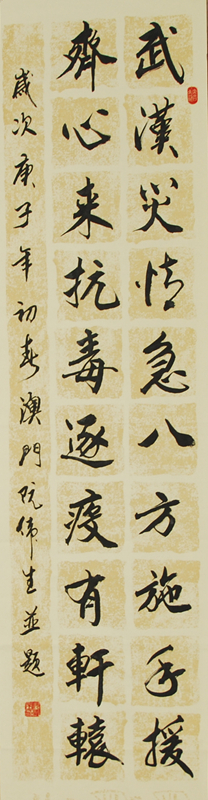 武漢災情急八方施手援
齊心来抗毒逐疫有軒轅
歲次庚子年初春澳門阮偉生並題